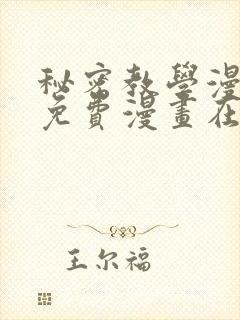 秘密教學漫
免費漫畫在
王尔福